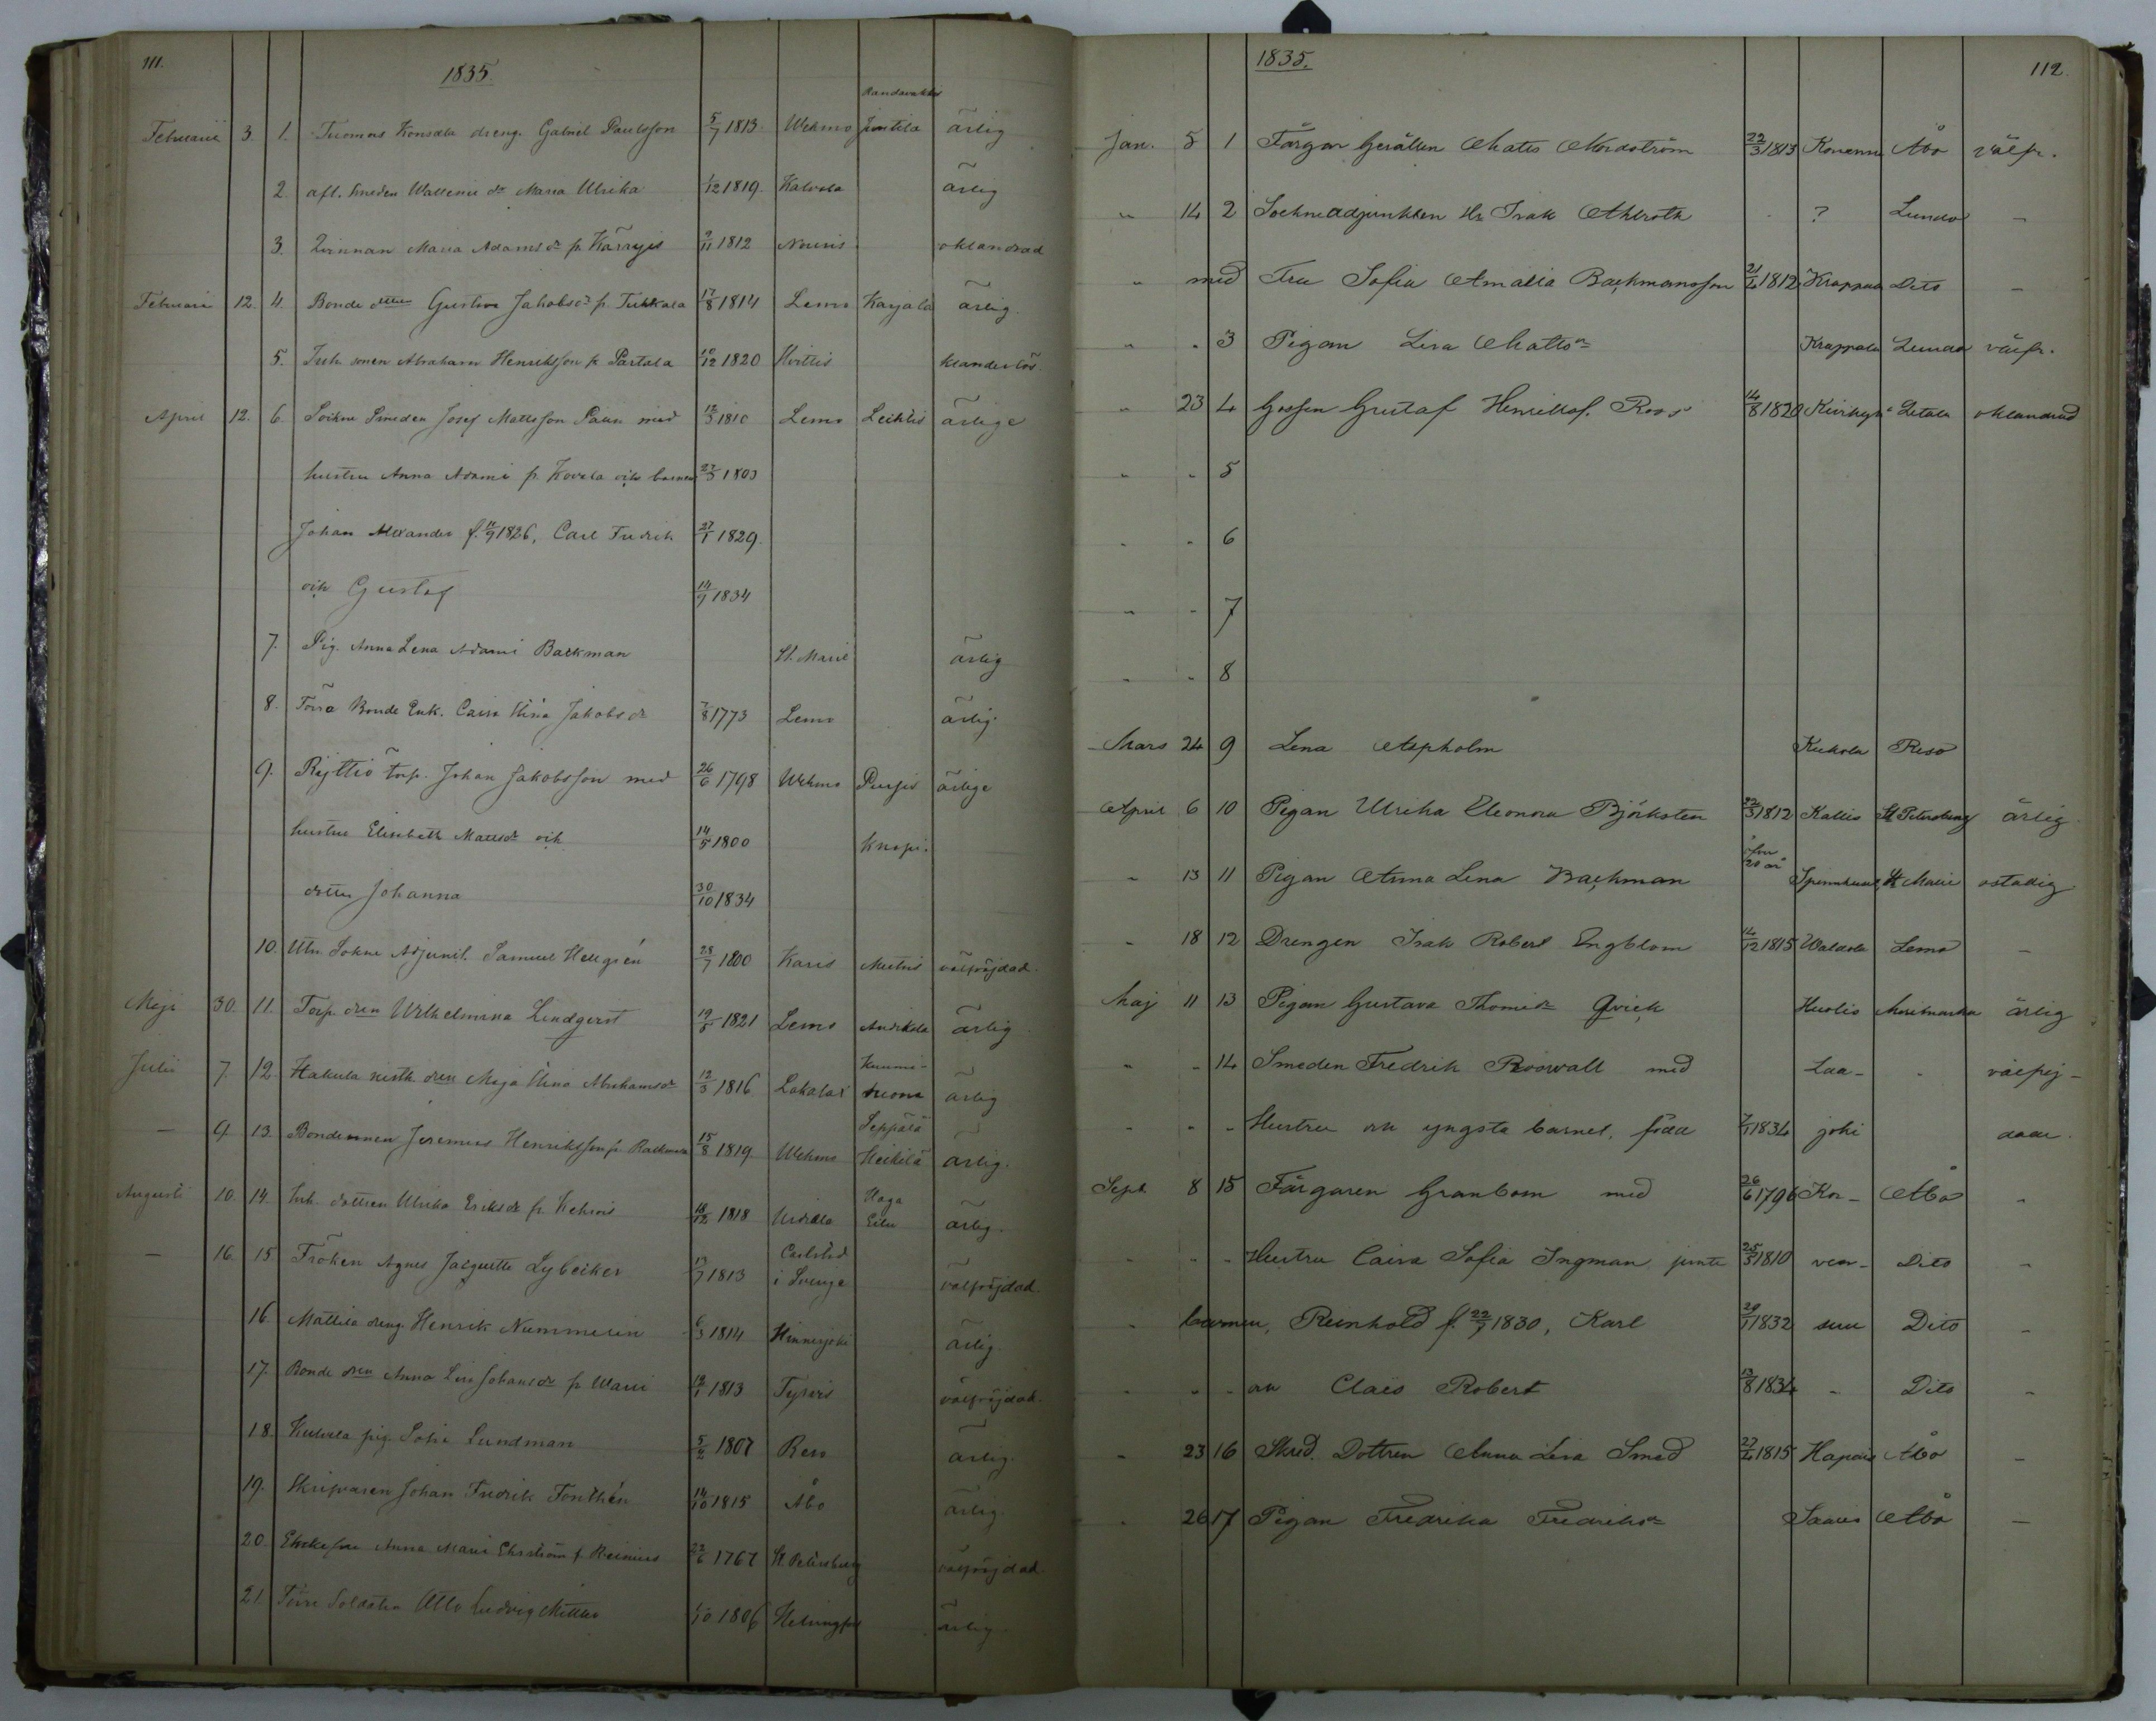 111.
1835.
Randavahto
Februarii 3. 1. Tuomas Konsala dreng. Gabriel Paulsson 5/7 1813. Wehmo Juntila ärlig
2. afl. Smeden Wallenii dr Maria Ulrika 1/12 1819. Kalvola ärlig
3. Qvinnan Maria Adamsdr fr. Kärrys 9/11 1812 Nousis oklandrad
Februari 12. 4. Bonde dttr Gustava Jakobsdr fr. Tukkala 17/8 1814 Lemo Kayala ärlig.
5. Inh. sonen Abraham Henriksson fr Partala 10/12 1820 Hvittis klanderlös.
April 12. 6. Sockne Smeden Josef Mattsson Palin med 12/3 1810 Lemo Leiklis ärlige
hustru Anna Adami fr. Kovela och barnen 27/3 1803
Johan Alexander f. 11/9 1826, Carl Fredrik 27/1 1829.
och Gustaf 14/9 1834
7. Pig. Anna Lena Adami Backman St. Marie ärlig
8. Förra Bonde Enk. Caisa Stina Jakobsdr 7/8 1773 Lemo ärlig.
9. Rijttiö torp. Johan Jakobsson med 26/6 1798 Wehmo Puujis ärlige
hustru Elisabeth Mattsdr och 14/5 1800 Knapi.
dotter Johanna 30/10 1834
10. Utn. Sokne Adjunct. Samuel Hellgrén 28/7 1800 Karis Mietois välfräjdad.
Maji 30. 11. Torp. dren Wilhelmina Lindqvist 19/5 1821 Lemo Andikala ärlig
Julii 7. 12. Hakula nisth. dren Maja Stina Abrahamsdr 12/3 1816 Lokalax Kuumi- ärlig
— 9. 13. Bondesonen Jeremias Henriksson fr. 15/8 1819. Wehmo Seppälä Heikilä ärlig.
Augusti 10. 14. Inh. dottren Ulrika Eriksdr fr. Kehrois 18/12 1818 Urdiala Haga ärlig.
— 16. 15. Fröken Agnes Jacquette Lybecker 13/7 1813 Carlstad i Sverige välfräjdad.
16. Mattila dreng. Henrik Nummelin 6/3 1814 Hinnerjoki ärlig.
17. Bonde dren Anna Lisa Johansdr fr Warri 12/1 1813 Tyrvis välfräjdad.
18. Kukola pig. Sofia Lundman 5/2 1807 Reso ärlig.
19. Skrifvaren Johan Fredrik Forthén 14/10 1815 Åbo ärlig.
20. Enkefru Anna Maria Ehrström f. Reinius 22/6 1767 St Petersburg välfräjdad.
21. Förre Soldaten Otto Ludvig Miller 1/10 1806 Helsingfors ärlig.
1835.
112.
Jan. 5 1 Färgar Gesällen Mats Nordström 22/3 1813 Korvensu Åbo välfr.
" 14 2 Sockneadjunkten Hr Isak Ahlroth ? Lundo —
" med Fru Sofia Amalia Backmansson 21/4 1812 Krappala Dito —
" " 3 Pigan Lisa Mattsdr Krappala Lundo välfr.
" 23 4 Gossen Gustaf Henrikss. Roos 14/8 1820 Letala oklandrad
" " 5
" " 6
" " 7
" " 8
Mars 24 9 Lena Aspholm Kukola Reso
April 6 10 Pigan Ulrika Eleonora Björksten 22/3 1812 Kallis St Petersburg ärlig
" 13 11 Pigan Anna Lena Backman öfver 20 år Spinnhuset St Marie ostadig
" 18 12 Drengen Isak Robert Engblom 14/12 1815 Waldola Lemo —
Maj 11 13 Pigan Gustava Thomædr Qvick Huolis Merimasku ärlig
" " 14 Smeden Fredrik Roswall med Laa- " välfrej-
" " " Hustru och yngsta barnet, född 7/1 1834 joki dade.
Sept. 8 15 Färgaren Granbom med 26/6 1796 Kor- Åbo "
" " " Hustru Caisa Sofia Ingman jemte 25/3 1810 ven- Dito "
" barnen, Reinhold f. 22/7 1830, Karl 29/1 1832 suu Dito "
" " " och Claës Robert 13/8 1834 " Dito "
" 23 16 Skred. Dottren Anna Lisa Smed 27/4 1815 Hapais Åbo —
" 26 17 Pigan Fredrika Fredriksdr Saaris Åbo —